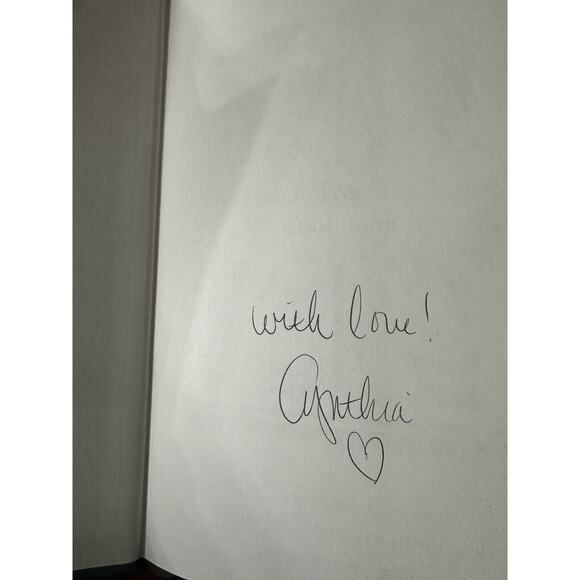 with love!
Cynthia